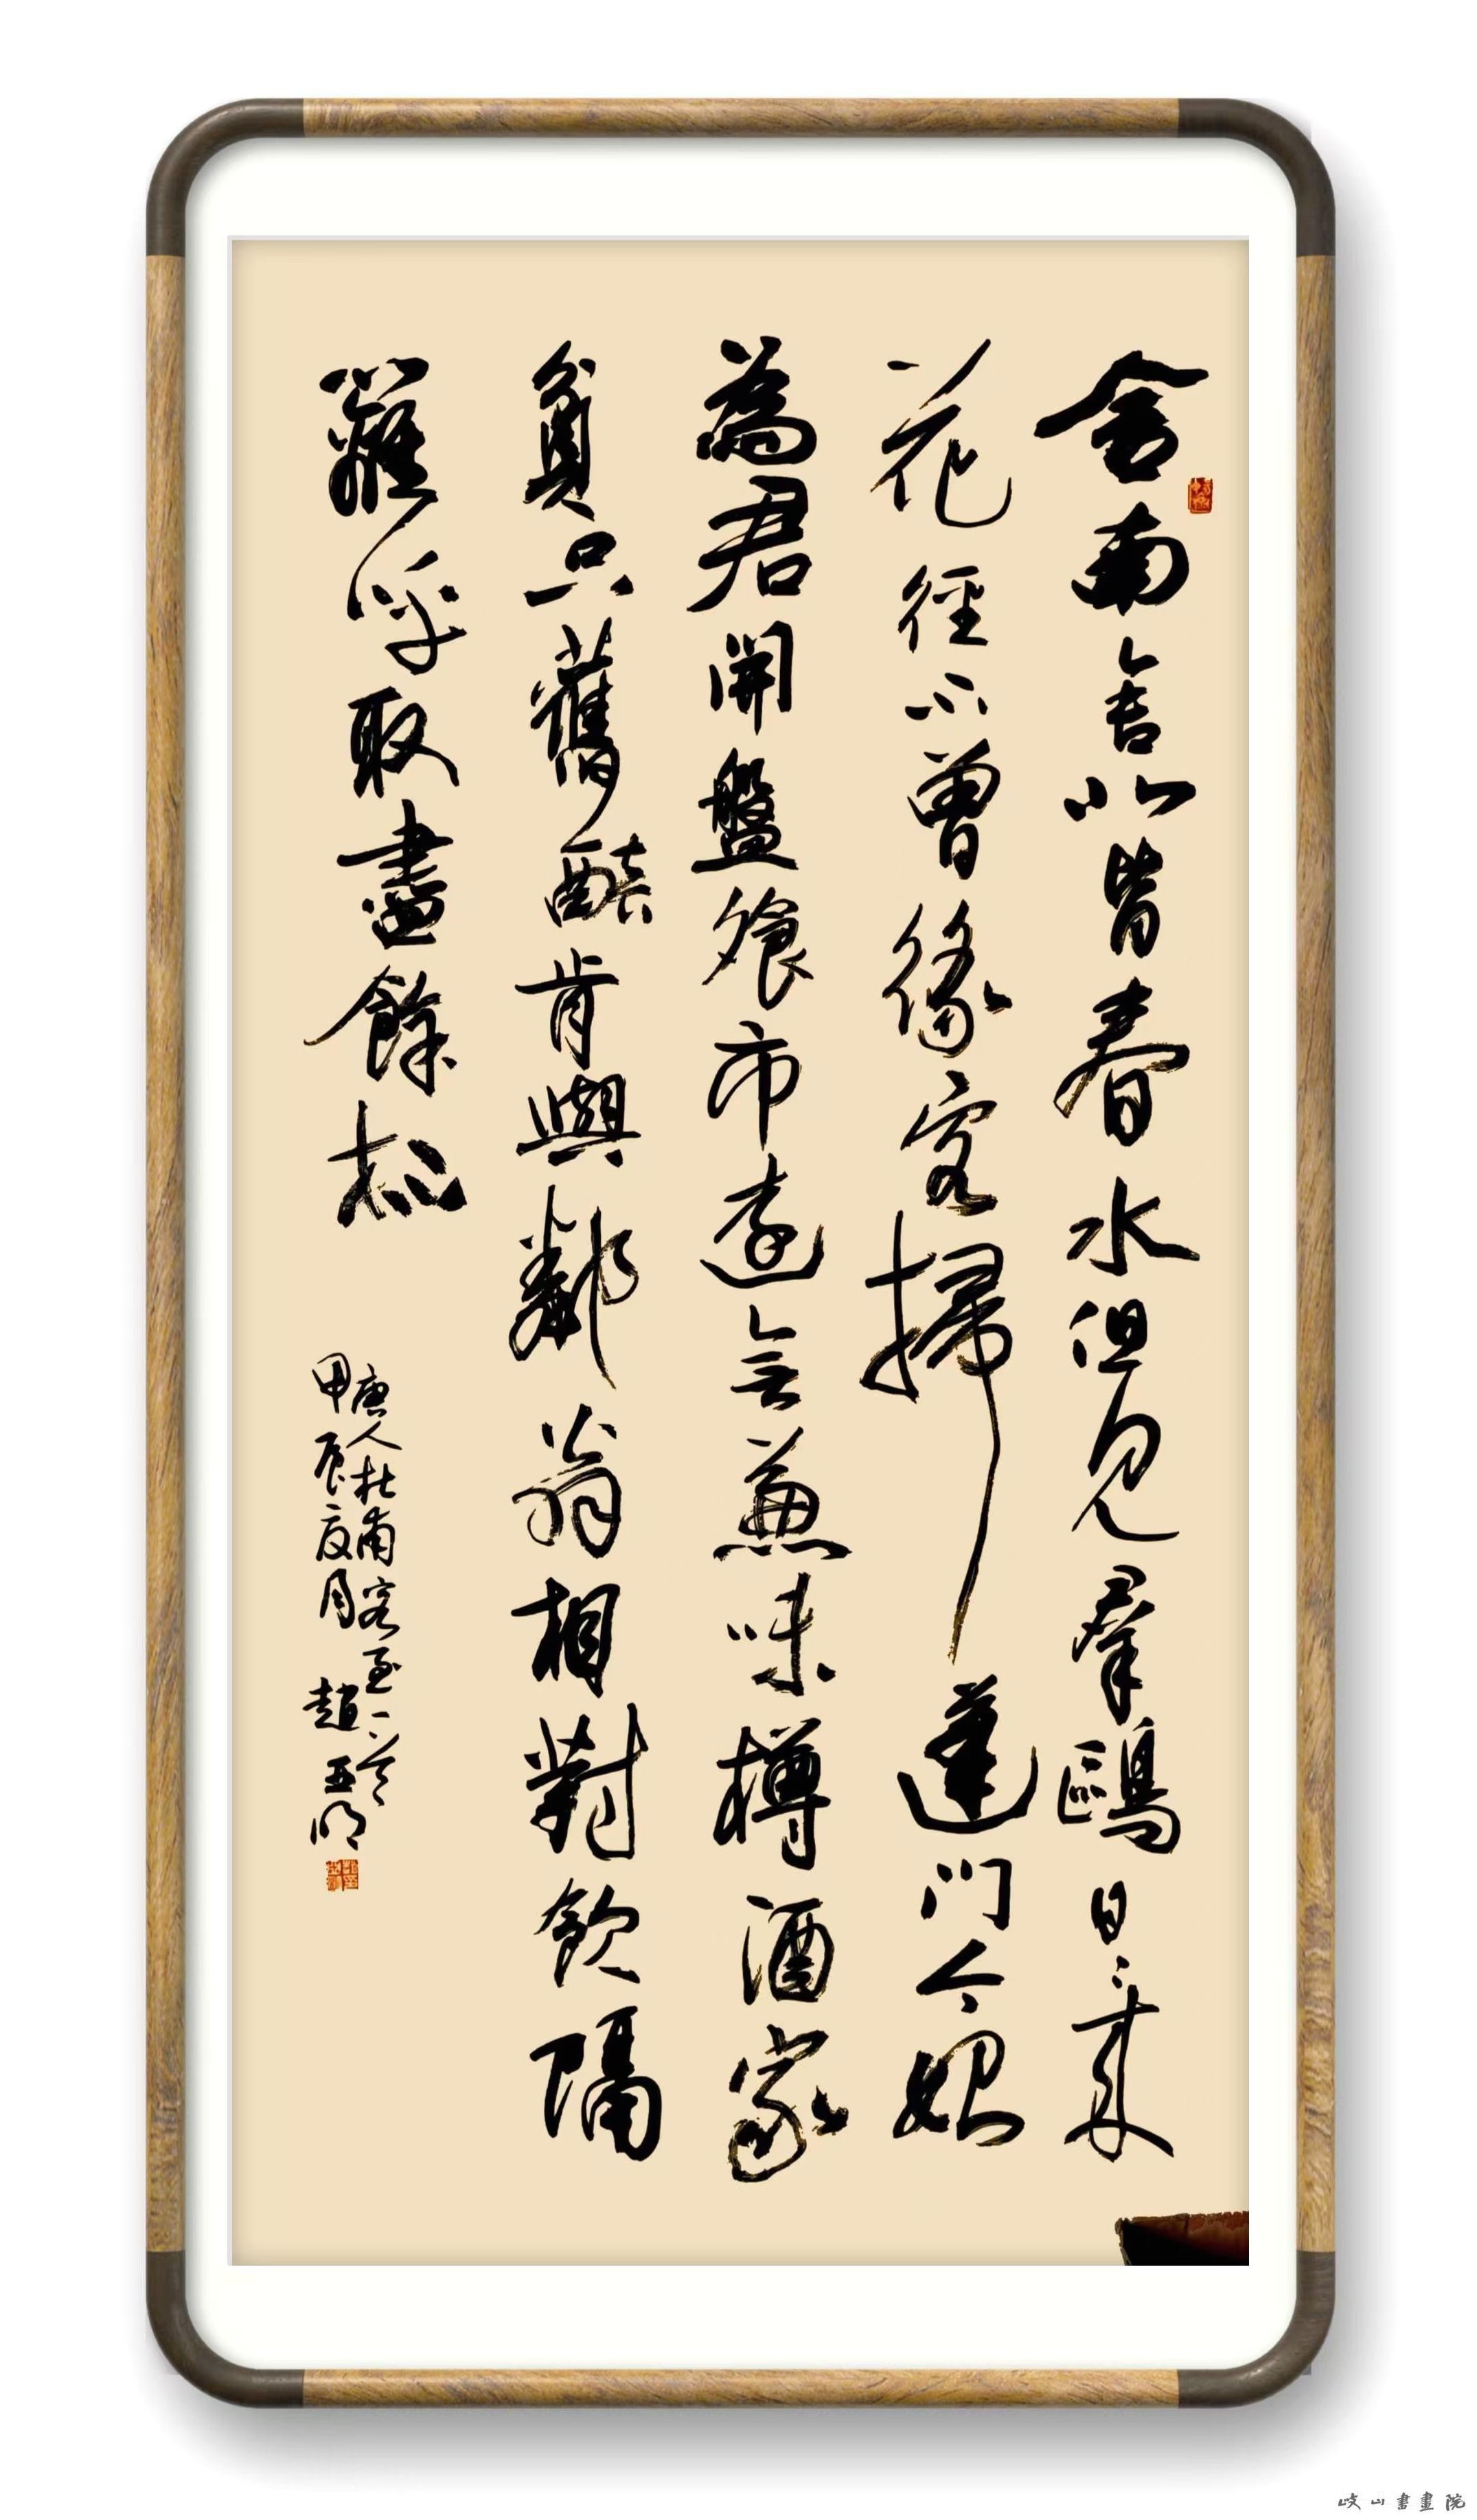 舍南舍北皆春水但見群鷗日々來
花徑不曾緣客掃蓬門今始
為君開盤飧市遠無兼味樽酒家
貧只舊醅肯與鄰翁相對飲隔
籬呼取盡餘杯
唐人杜甫客至一首
甲辰夏月 趙亚明
岐山書畫院